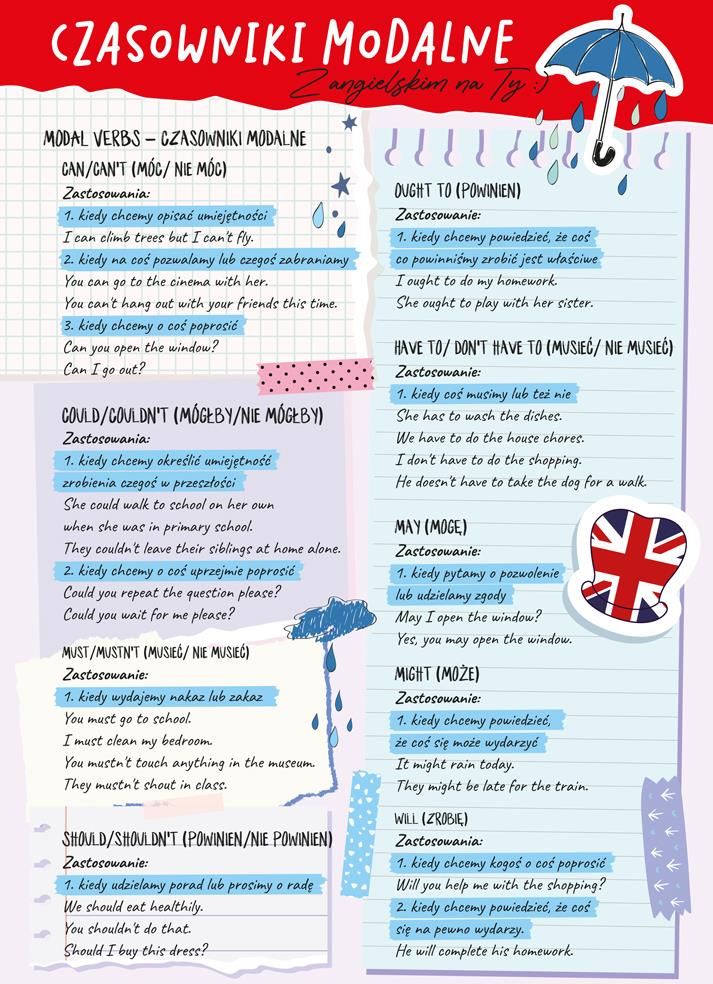 CZASOWNIKI MODALNE
Z angielskim na Ty :)
MODAL VERBS – CZASOWNIKI MODALNE
CAN/CAN'T (MÓC/ NIE MÓC)
Zastosowania:
1. kiedy chcemy opisać umiejętności
I can climb trees but I can't fly.
2. kiedy na coś pozwalamy lub czegoś zabraniamy
You can go to the cinema with her.
You can't hang out with your friends this time.
3. kiedy chcemy o coś poprosić
Can you open the window?
Can I go out?
COULD/COULDN'T (MÓGŁBY/NIE MÓGŁBY)
Zastosowania:
1. kiedy chcemy określić umiejętność
zrobienia czegoś w przeszłości
She could walk to school on her own
when she was in primary school.
They couldn't leave their siblings at home alone.
2. kiedy chcemy o coś uprzejmie poprosić
Could you repeat the question please?
Could you wait for me please?
MUST/MUSTN'T (MUSIEĆ/ NIE MUSIEĆ)
Zastosowanie:
1. kiedy wydajemy nakaz lub zakaz
You must go to school.
I must clean my bedroom.
You mustn't touch anything in the museum.
They mustn't shout in class.
SHOULD/SHOULDN'T (POWINIEN/NIE POWINIEN)
Zastosowanie:
1. kiedy udzielamy porad lub prosimy o radę
We should eat healthily.
You shouldn't do that.
Should I buy this dress?
OUGHT TO (POWINIEN)
Zastosowanie:
1. kiedy chcemy powiedzieć, że coś
co powinniśmy zrobić jest właściwe
I ought to do my homework.
She ought to play with her sister.
HAVE TO/ DON'T HAVE TO (MUSIEĆ/ NIE MUSIEĆ)
Zastosowanie:
1. kiedy coś musimy lub też nie
She has to wash the dishes.
We have to do the house chores.
I don't have to do the shopping.
He doesn't have to take the dog for a walk.
MAY (MOGĘ)
Zastosowanie:
1. kiedy pytamy o pozwolenie
lub udzielamy zgody
May I open the window?
Yes, you may open the window.
MIGHT (MOŻE)
Zastosowanie:
1. kiedy chcemy powiedzieć,
że coś się może wydarzyć
It might rain today.
They might be late for the train.
WILL (ZROBIĘ)
Zastosowania:
1. kiedy chcemy kogoś o coś poprosić
Will you help me with the shopping?
2. kiedy chcemy powiedzieć, że coś
się na pewno wydarzy.
He will complete his homework.